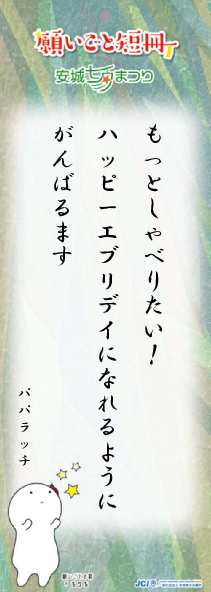 願いごと短冊
安城七夕まつり
もっとしゃべりたい！
ハッピーエブリデイになれるように
がんばるます
パパラッチ
JCI